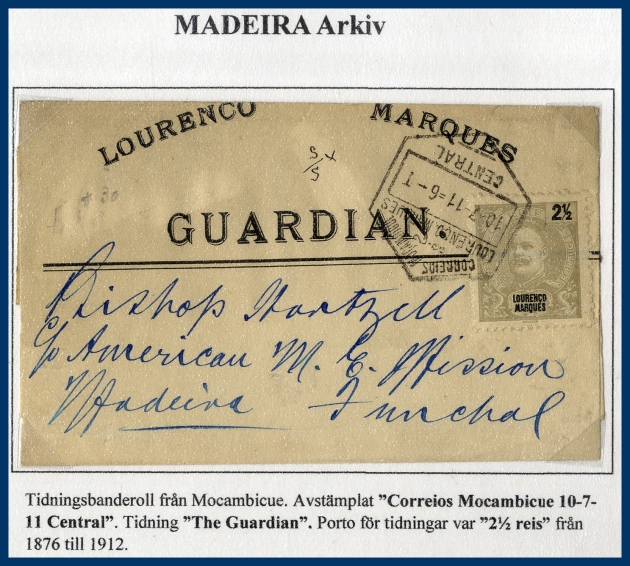 MADEIRA Arkiv
LOURENCO MARQUES
S/S x
GUARDIAN.
CORREIOS
LOURENCO MARQUES
CENTRAL
2½
LOURENCO
MARQUES
Bishop Hartzell
c/o American M. E. Mission
Madeira Funchal
Tidningsbanderoll från Mocambicue. Avstämplat ”Correios Mocambicue 10-7-
11 Central”. Tidning ”The Guardian”. Porto för tidningar var ”2½ reis” från
1876 till 1912.